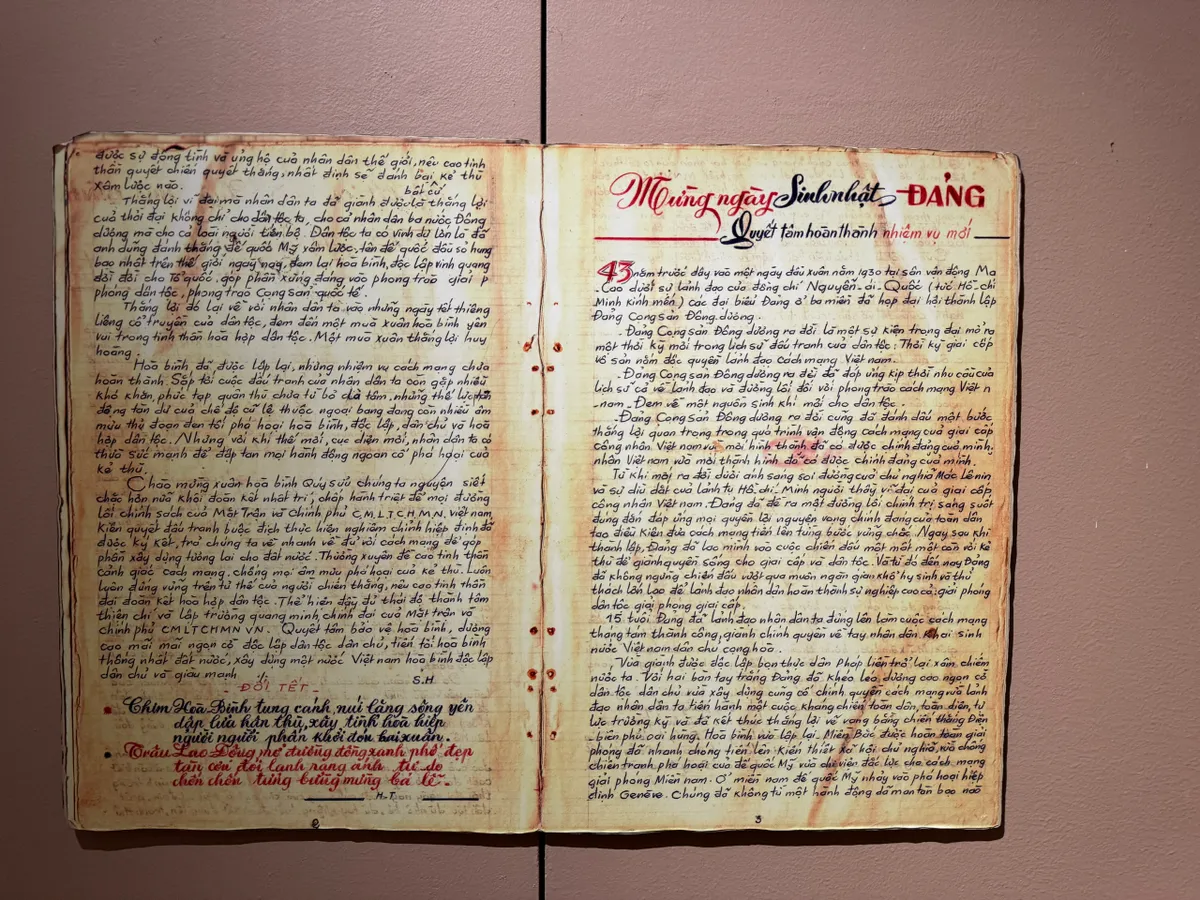 được sự đồng tình và ủng hộ của nhân dân thế giới, nêu cao tinh
thần quyết chiến quyết thắng, nhất định sẽ đánh bại kẻ thù
bất cứ
xâm lược nào.
Thắng lợi vĩ đại mà nhân dân ta đã giành được là thắng lợi
của thời đại không chỉ cho dân tộc ta, cho cả nhân dân ba nước Đông
dương mà cho cả loài người tiến bộ. Dân tộc ta có vinh dự lớn là đã
anh dũng đánh thắng đế quốc Mỹ xâm lược, tên đế quốc đầu sỏ hung
bạo nhất trên thế giới ngày nay, đem lại hoà bình, độc lập vinh quang
đời đời cho Tổ quốc, góp phần xứng đáng vào phong trào giải p
phóng dân tộc, phong trào Cộng sản quốc tế.
Thắng lợi đó lại về với nhân dân ta vào những ngày tết thiêng
liêng cổ truyền của dân tộc, đem đến một mùa xuân hoà bình yên
vui trong tinh thần hoà hợp dân tộc. Một mùa xuân thắng lợi huy
hoàng.
Hoà bình đã được lập lại, nhưng nhiệm vụ cách mạng chưa
hoàn thành. Sắp tới cuộc đấu tranh của nhân dân ta còn gặp nhiều
khó khăn, phức tạp quân thù chưa từ bỏ dã tâm, những thế lực phản
động tàn dư của chế độ cũ lệ thuộc ngoại bang đang còn nhiều âm
mưu thủ đoạn đen tối phá hoại hoà bình, độc lập, dân chủ và hoà
hợp dân tộc. Nhưng với khí thế mới, cục diện mới, nhân dân ta có
thừa sức mạnh để đập tan mọi hành động ngoan cố phá hoại của
kẻ thù.
Chào mừng xuân hoà bình Quý sửu chúng ta nguyện siết
chặc hơn nữa khối đoàn kết nhất trí, chấp hành triệt để mọi đường
lối chính sách của Mặt Trận và Chính phủ C.M.L.T.C.H.M.N. việt nam,
kiên quyết đấu tranh buộc địch thực hiện nghiêm chỉnh hiệp định đã
được ký kết, trả chúng ta về nhanh về đủ với cách mạng để góp
phần xây dựng tương lai cho đất nước. Thường xuyên đề cao tinh thần
cảnh giác cách mạng, chống mọi âm mưu phá hoại của kẻ thù. Luôn
luôn đứng vững trên tư thế của người chiến thắng, nêu cao tinh thần
đại đoàn kết hoà hợp dân tộc. Thể hiện đầy đủ thái độ thành tâm
thiện chí và lập trường quang minh, chính đại của Mặt trận và
chính phủ CMLTCHMN VN. Quyết tâm bảo vệ hoà bình, dương
cao mãi mãi ngọn cờ độc lập dân tộc dân chủ, tiến tới hoà bình
thống nhất đất nước, xây dựng một nước Việt nam hoà bình độc lập
dân chủ và giàu mạnh ./.
S.H
- ĐỐI TẾT -
Chim Hoà Bình tung cánh, núi lặng sông yên
dập lửa hận thù, xây tình hoà hiệp
người người phấn khởi đón tươi xuân.
Trâu Lao Động mở đường đồng xanh phố đẹp
tan cơn đói lạnh rạng ánh tự do
chốn chốn tưng bừng mừng bá lễ -
H.T
2
Mừng ngày Sinh nhật ĐẢNG
Quyết tâm hoàn thành nhiệm vụ mới
43 năm trước đây vào một ngày đầu xuân năm 1930 tại sân vận động Ma
- Cao dưới sự lãnh đạo của đồng chí Nguyễn-ái-Quốc (tức Hồ-chí
Minh kính mến) các đại biểu Đảng ở ba miền đã họp đại hội thành lập
Đảng Cộng sản Đông dương.
-Đảng Cộng sản Đông dương ra đời là một sự kiện trọng đại mở ra
một thời kỳ mới trong lịch sử đấu tranh của dân tộc: Thời kỳ giai cấp
vô sản nắm độc quyền lãnh đạo cách mạng Việt nam.
-Đảng Cộng sản Đông dương ra đời đã đáp ứng kịp thời nhu cầu của
lịch sử cả về lãnh đạo và đường lối đối với phong trào cách mạng Việt n
-nam - Đem về một nguồn sinh khí mới cho dân tộc.
-Đảng Cộng sản Đông dương ra đời cũng đã đánh dấu một bước
thắng lợi quan trọng trong quá trình vận động cách mạng của giai cấp
công nhân Việt nam vừa mới hình thành đã có được chính đảng của mình,
nhân Việt nam vừa mới thành hình đã có được chính đảng của mình.
Từ khi mới ra đời dưới ánh sáng soi đường của chủ nghĩa Mác Lê nin
và sự dìu dắt của lãnh tụ Hồ chí Minh người thầy vĩ đại của giai cấp
công nhân Việt nam. Đảng đã đề ra một đường lối chính trị sáng suốt
đúng đắn đáp ứng mọi quyền lợi nguyện vọng chính đáng của toàn dân
tạo điều kiện đưa cách mạng tiến lên từng bước vững chắc. Ngay sau khi
thành lập, Đảng đã lao mình vào cuộc chiến đấu một mất một còn với kẻ
thù để giành quyền sống cho giai cấp và dân tộc. Và từ đó đến nay Đảng
đã không ngừng chiến đấu vượt qua muôn ngàn gian khổ hy sinh và thử
thách lớn lao để lãnh đạo nhân dân hoàn thành sự nghiệp cao cả: giải phóng
dân tộc giải phóng giai cấp.
15 tuổi Đảng đã lãnh đạo nhân dân ta đứng lên làm cuộc cách mạng
tháng tám thành công, giành chính quyền về tay nhân dân khai sinh
nước Việt nam dân chủ cộng hoà.
Vừa giành được độc lập bọn thực dân Pháp liền trở lại xâm chiếm
nước ta. Với hai bàn tay trắng Đảng đã khéo léo, dương cao ngọn cờ
dân tộc dân chủ vừa xây dựng củng cố chính quyền cách mạng vừa lãnh
đạo nhân dân ta tiến hành một cuộc kháng chiến toàn dân, toàn diện, tự
lực trường kỳ và đã kết thúc thắng lợi vẻ vang bằng chiến thắng Điện
biên phủ oai hùng. Hoà bình vừa lập lại. Miền Bắc được hoàn toàn giải
phóng đã nhanh chóng tiến lên Kiến thiết xã hội chủ nghĩa, vừa chống
chiến tranh phá hoại của đế quốc Mỹ vừa chi viện đắc lực cho cách mạng
giải phóng Miền nam. Ở miền nam đế quốc Mỹ nhảy vào phá hoại hiệp
định Genève. Chúng đã không từ một hành động dã man tàn bạo nào
3